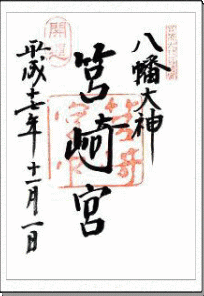 八幡大神
筥崎宮
平成十七年十一月一日